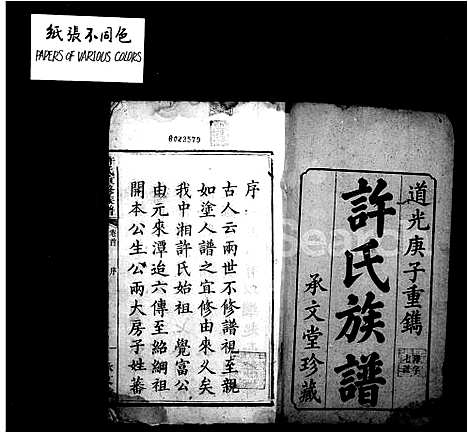 纸張不同色
PAPERS OF VARIOUS COLORS
8023579
道光庚子重鐫
許氏族譜
承文堂珍藏
序
古人云兩世不修譜視至親
如塗人譜之宜修由來久矣
我中湘許氏始祖覺富公
由元來潭迨六傳至紹綱祖
開本公生公兩大房子姓蕃
卷首
序